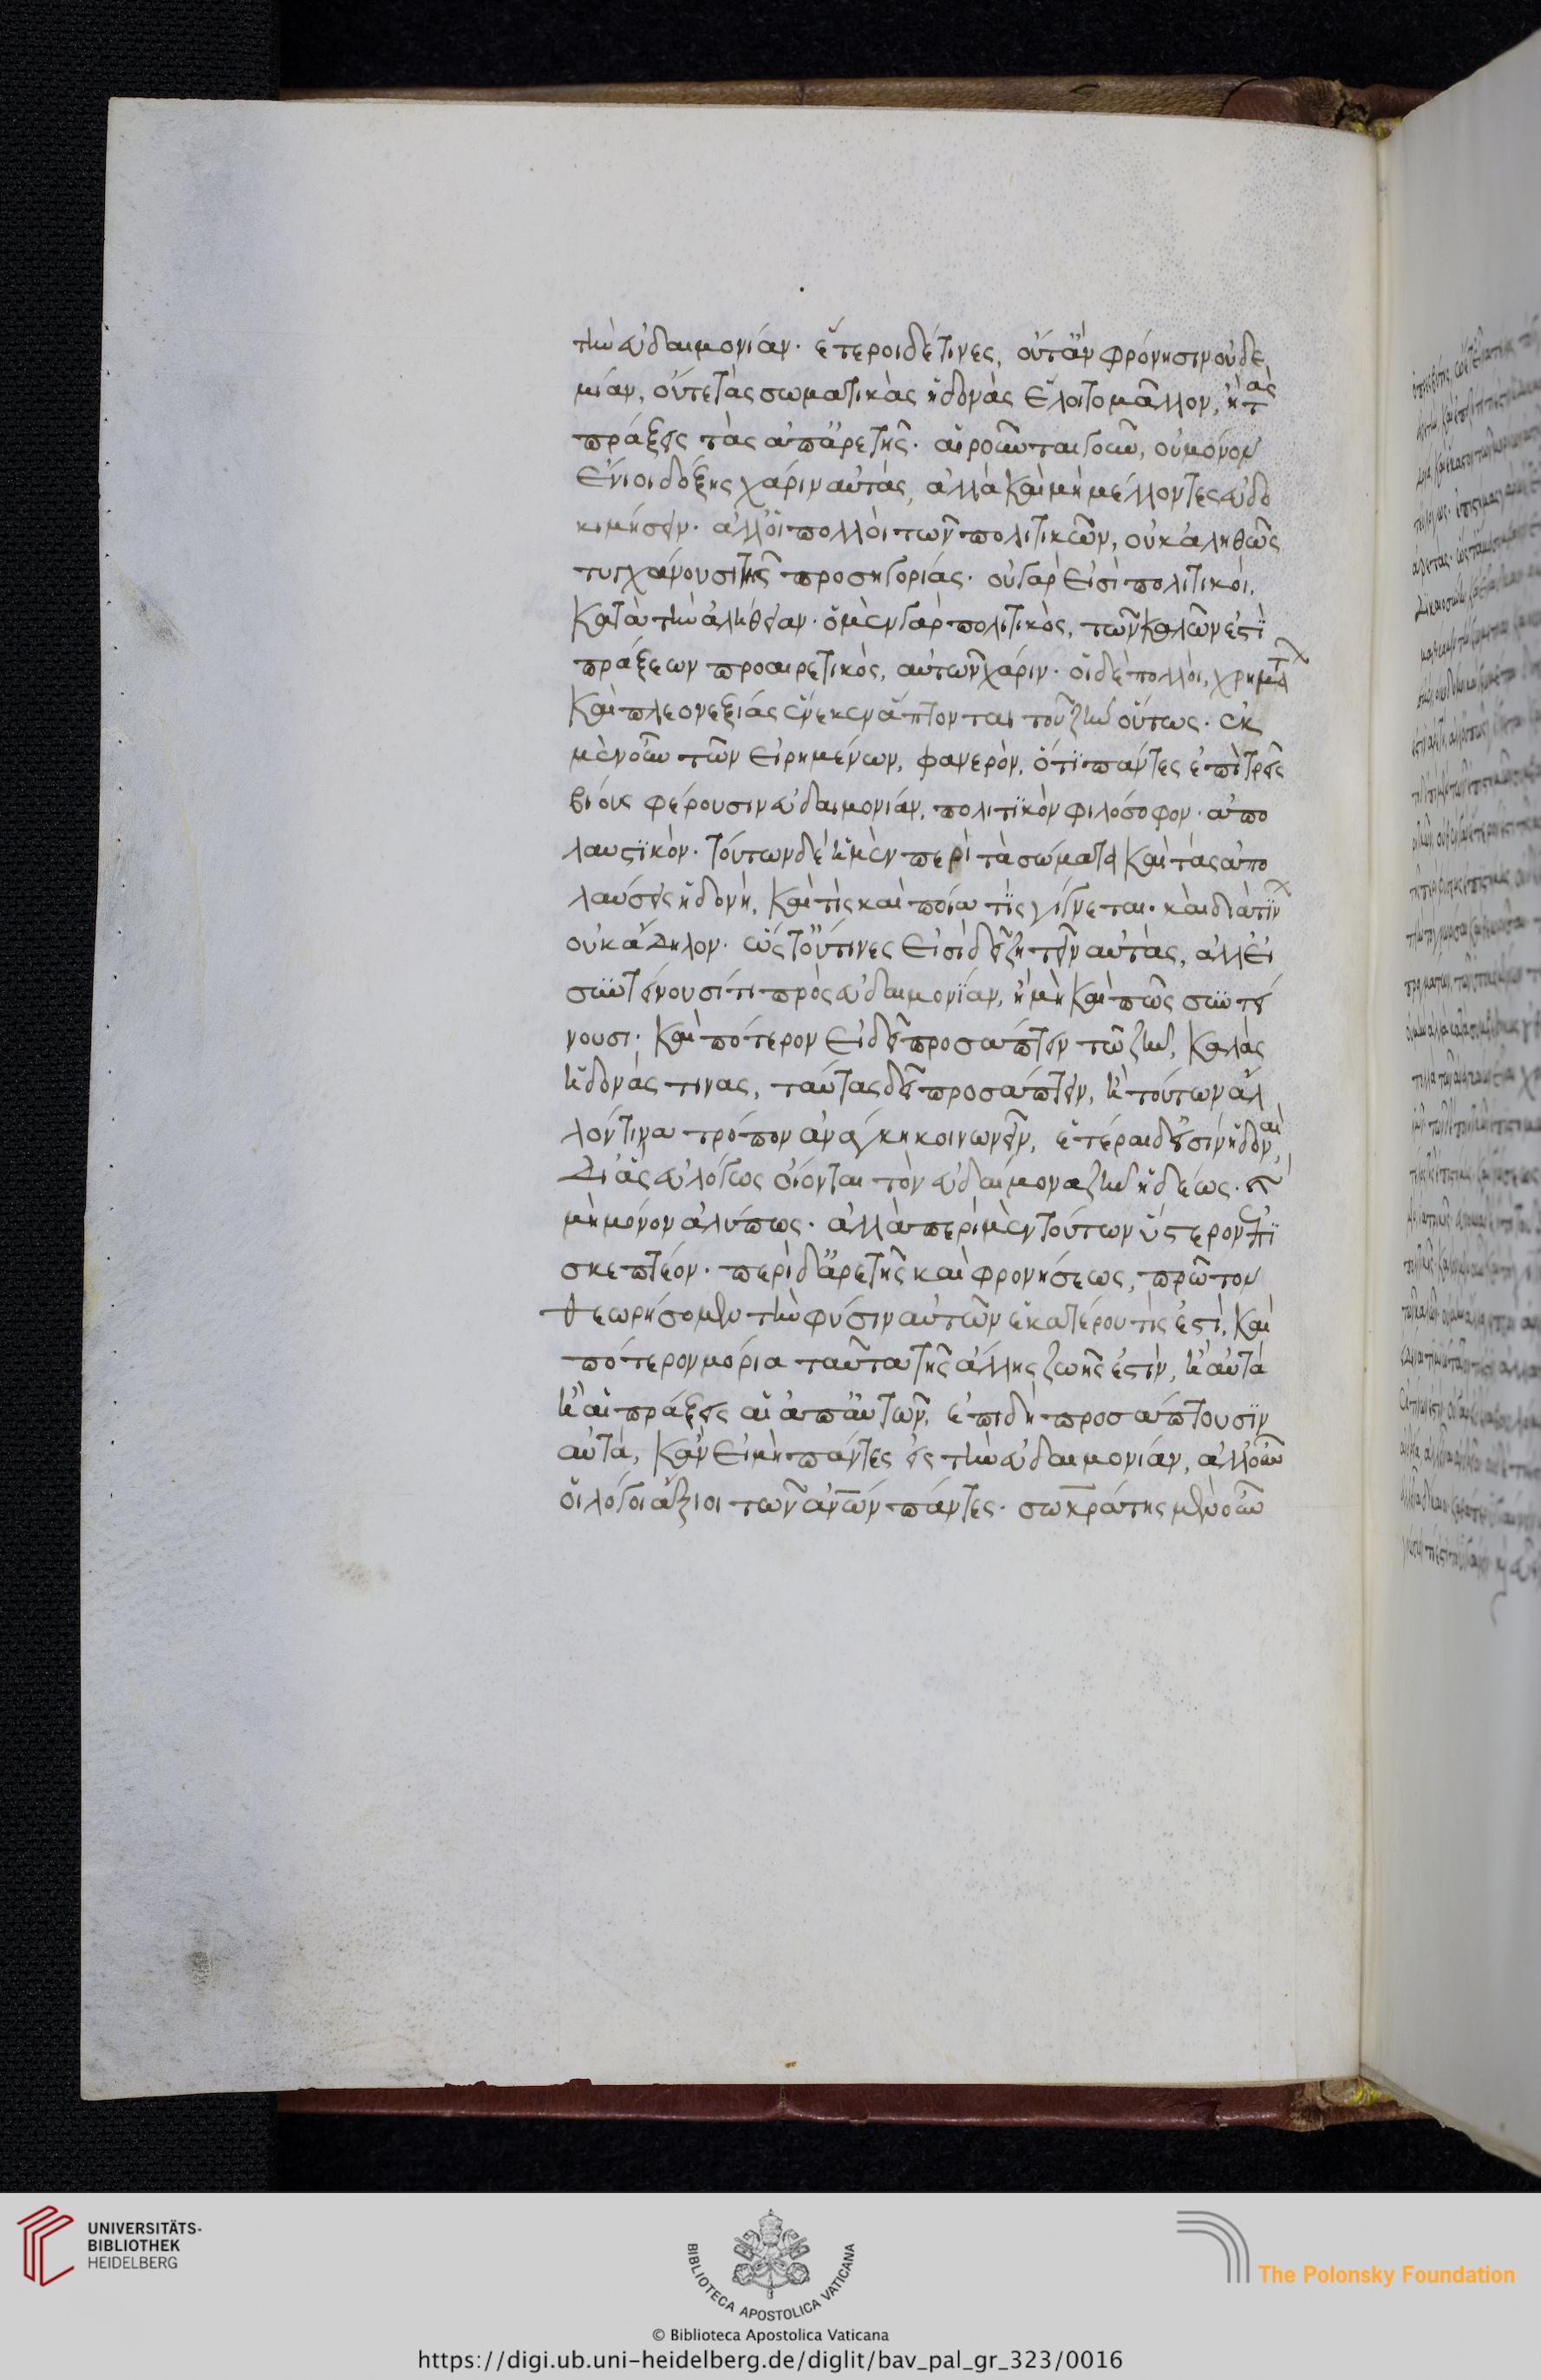 τὴν εὐδαιμονίαν. ἕτεροι δέ τινες, οὔτ' ἂν φρόνησιν οὐδε
μίαν, οὔτε τὰς σωματικὰς ἡδονὰς ἕλοιτο μᾶλλον, ἢ τὰς
πράξεις τὰς ἀπ' ἀρετῆς. αἱροῦνται γοῦν, οὐ μόνον
ἔνιοι δόξης χάριν αὐτάς, ἀλλὰ καὶ μὴ μέλλοντες εὐδο
κιμήσειν. ἀλλ' οἱ πολλοὶ τῶν πολιτικῶν, οὐκ ἀληθῶς
τυγχάνουσι τῆς προσηγορίας. οὐ γάρ εἰσι πολιτικοί,
κατὰ τὴν ἀλήθειαν. ὁ μὲν γὰρ πολιτικὸς, τῶν καλῶν ἐστὶ
πράξεων προαιρετικὸς, αὐτῶν χάριν. οἱ δὲ πολλοὶ, χρημάτων
καὶ πλεονεξίας ἕνεκεν ἅπτονται τοῦ ζῆν οὕτως. ἐκ
μὲν οὖν τῶν εἰρημένων, φανερὸν, ὅτι πάντες ἐπὶ τρεῖς
βίους φέρουσιν εὐδαιμονίαν, πολιτικὸν φιλόσοφον. ἀπο
λαυστικόν. τούτων δὲ ἡ μὲν περὶ τὰ σώματα καὶ τὰς ἀπο
λαύσεις ἡδονὴ, καὶ τίς καὶ ποία τίς γίγνεται. καὶ διὰ τίνων
οὐκ ἄδηλον. ὥστ' οὔ τινες εἰσὶ δεῖ ζητεῖν αὐτάς, ἀλλ' εἰ
συντείνουσί τι πρὸς εὐδαιμονίαν, ἢ μὴ καὶ πῶς συντεί
νουσι. καὶ πότερον εἰ δεῖ προσάπτειν τῶ ζῆν, καλὰς
ἡδονάς τινας, ταύτας δεῖ προσάπτειν, ἢ τούτων ἄλ
λόν τινα τρόπον ἀνάγκη κοινωνεῖν, ἕτεραι δ' εἰσὶν ἡδοναὶ,
δι' ἃς εὐλόγως οἴονται τὸν εὐδαίμονα ζῆν ἡδέως. καὶ
μὴ μόνον ἀλύπως. ἀλλὰ περὶ μὲν τούτων ὕστερον ἐπι
σκεπτέον. περὶ δ' ἀρετῆς καὶ φρονήσεως, πρῶτον
θεωρήσομεν τὴν φύσιν αὐτῶν ἑκατέρου τίς ἐστὶ, καὶ
πότερον μόρια ταῦτα τῆς ἄλλης ζωῆς ἐστὶν, ἢ αὐτὰ
ἢ αἱ πράξεις αἱ ἀπ' αὐτῶν, ἐπειδὴ προσάπτουσιν
αὐτὰ, κἂν εἰ μὴ πάντες εἰς τὴν εὐδαιμονίαν, ἀλλ' οὖν
οἱ λόγοι ἄξιοι τῶν ἀνων πάντες. σωκράτης μὲν οὖν
UNIVERSITÄTS-
BIBLIOTHEK
HEIDELBERG
BIBLIOTECA APOSTOLICA VATICANA
The Polonsky Foundation
© Biblioteca Apostolica Vaticana
https://digi.ub.uni-heidelberg.de/diglit/bav_pal_gr_323/0016